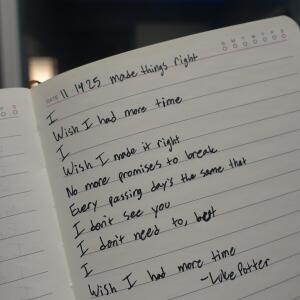 S M T W T F S
DATE 11 14 25 made things right
I
Wish I had more time
I
Wish I made it right
No more promises to break
Every passing day's the same that
I don't see you
I don't need to, but
I
Wish I had more time
-Luke Potter